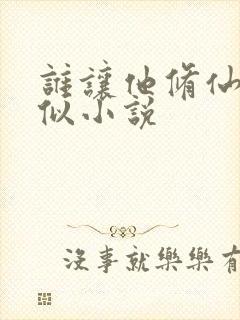 誰讓他脩仙
似小說
沒事就樂樂有